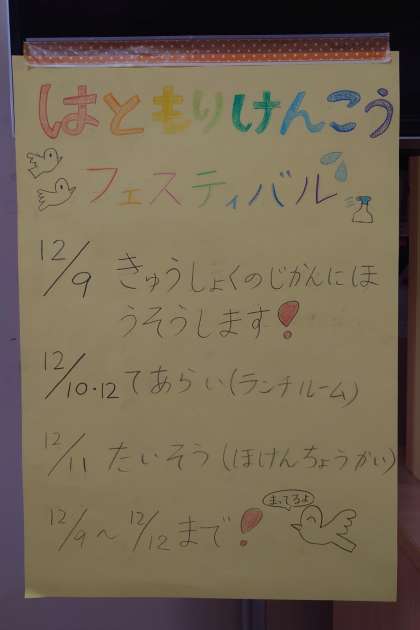 はともりけんこう
フェスティバル
12/9 きゅうしょくのじかんにほ
うそうします!
12/10・12 てあらい(ランチルーム)
12/11 たいそう(ほけんちょうかい)
12/9〜12/12まで!
まってるよ